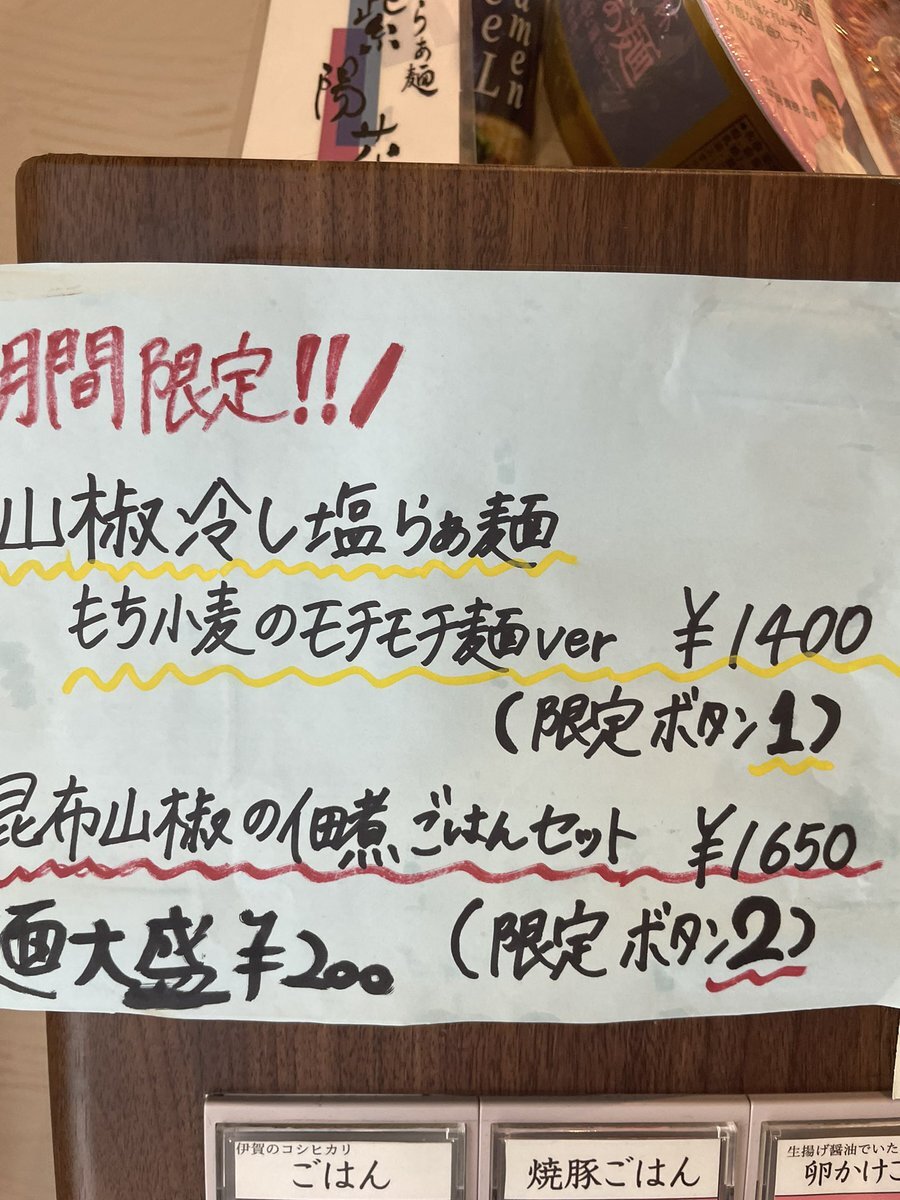 らぁ麺
紫陽花
期間限定!!
山椒冷し塩らぁ麺
もち小麦のモチモチ麺ver ¥1400
(限定ボタン1)
昆布山椒の佃煮ごはんセット ¥1650
麺大盛¥200 (限定ボタン2)
伊賀のコシヒカリ
ごはん
焼豚ごはん
生揚げ醤油でいた
卵かけご